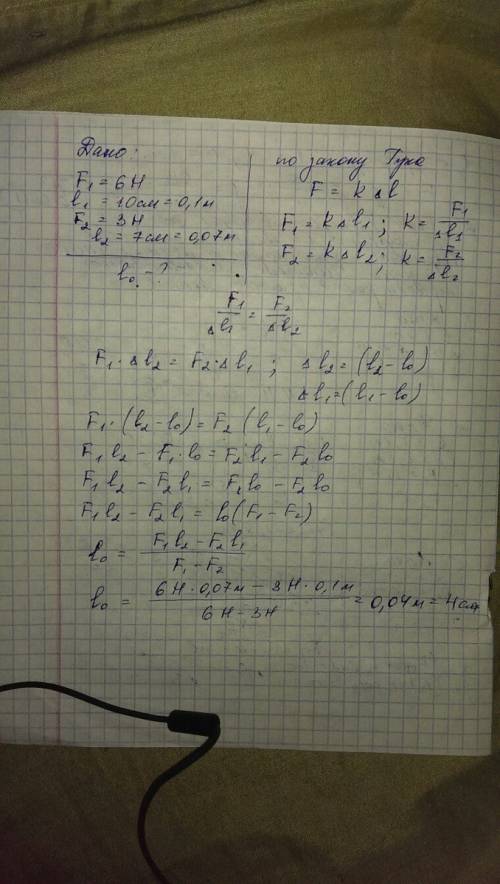 Дано:
F₁ = 6 Н
l₁ = 10 см = 0,1 м
F₂ = 3 Н
l₂ = 7 см = 0,07 м
l₀ - ?
по закону Гука
F = k Δl
F₁ = k Δl₁ ; k = F₁/Δl₁
F₂ = k Δl₂ ; k = F₂/Δl₂
F₁/Δl₁ = F₂/Δl₂
F₁ · Δl₂ = F₂ · Δl₁ ; Δl₂ = (l₂ - l₀)
Δl₁ = (l₁ - l₀)
F₁ · (l₂ - l₀) = F₂ (l₁ - l₀)
F₁ l₂ - F₁ · l₀ = F₂ l₁ - F₂ l₀
F₁ l₂ - F₂ l₁ = F₁ l₀ - F₂ l₀
F₁ l₂ - F₂ l₁ = l₀ (F₁ - F₂)
l₀ = (F₁ l₂ - F₂ l₁)/(F₁ - F₂)
l₀ = (6 Н · 0,07 м - 3 Н · 0,1 м)/(6 Н - 3 Н) = 0,04 м = 4 см